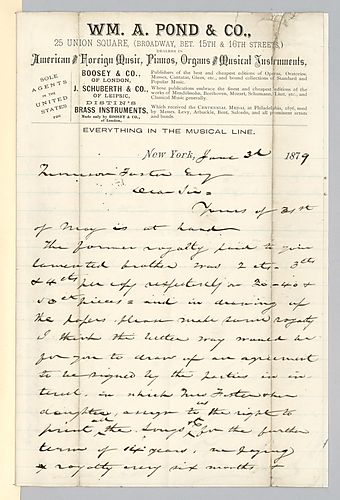 WM. A. POND & CO.,
25 UNION SQUARE, (BROADWAY, BET. 15TH & 16TH STREETS,)
DEALERS IN
American and Foreign Music, Pianos, Organs and Musical Instruments.
SOLE AGENTS IN THE UNITED STATES FOR
BOOSEY & CO., OF LONDON,
Publishers of the best and cheapest editions of Operas, Oratorios, Masses, Cantatas, Glees, etc., and bound collections of Standard and Popular Music.
J. SCHUBERTH & CO., OF LEIPSIC,
Whose publications embrace the finest and cheapest editions of the works of Mendelssohn, Beethoven, Mozart, Schumann, Liszt, etc., and Classical Music generally.
DISTIN'S BRASS INSTRUMENTS, Made only by BOOSEY & CO., of London,
Which received the CENTENNIAL MEDAL at Philadelphia, 1876, used by Messrs. Levy, Arbuckle, Bent, Salcedo, and all prominent artists and bands.
EVERYTHING IN THE MUSICAL LINE.
New York, June 3d 1879
Morrison Foster Esq
Dear Sir
Yours of 31st
of May is at hand
The former royalty paid to your
lamented brother was 2 cts. 3cts
& 4cts per copy respectively on 30 - 40 &
50ct pieces = and in drawing up
the papers please make same royalty
I think the better way would be
for you to draw up an agreement
to be signed by the parties in in
terest, in which Mrs Foster & her
daughter, assign to us the right to
print the Songs &c for the further
term of 14 years, we paying
a royalty every six months &